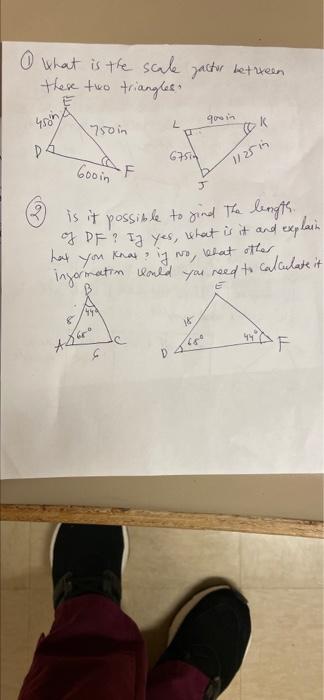 ① What is the scale factor between
these two triangles.
E
450in
750in
D
600in
F
L
900in
K
675in
1125in
J
② is it possible to find The length
of DF? If yes, what is it and explain
how you know? if no, what other
information would you need to calculate it
B
44°
8
68°
A
6
C
E
18
68°
44°
D
F